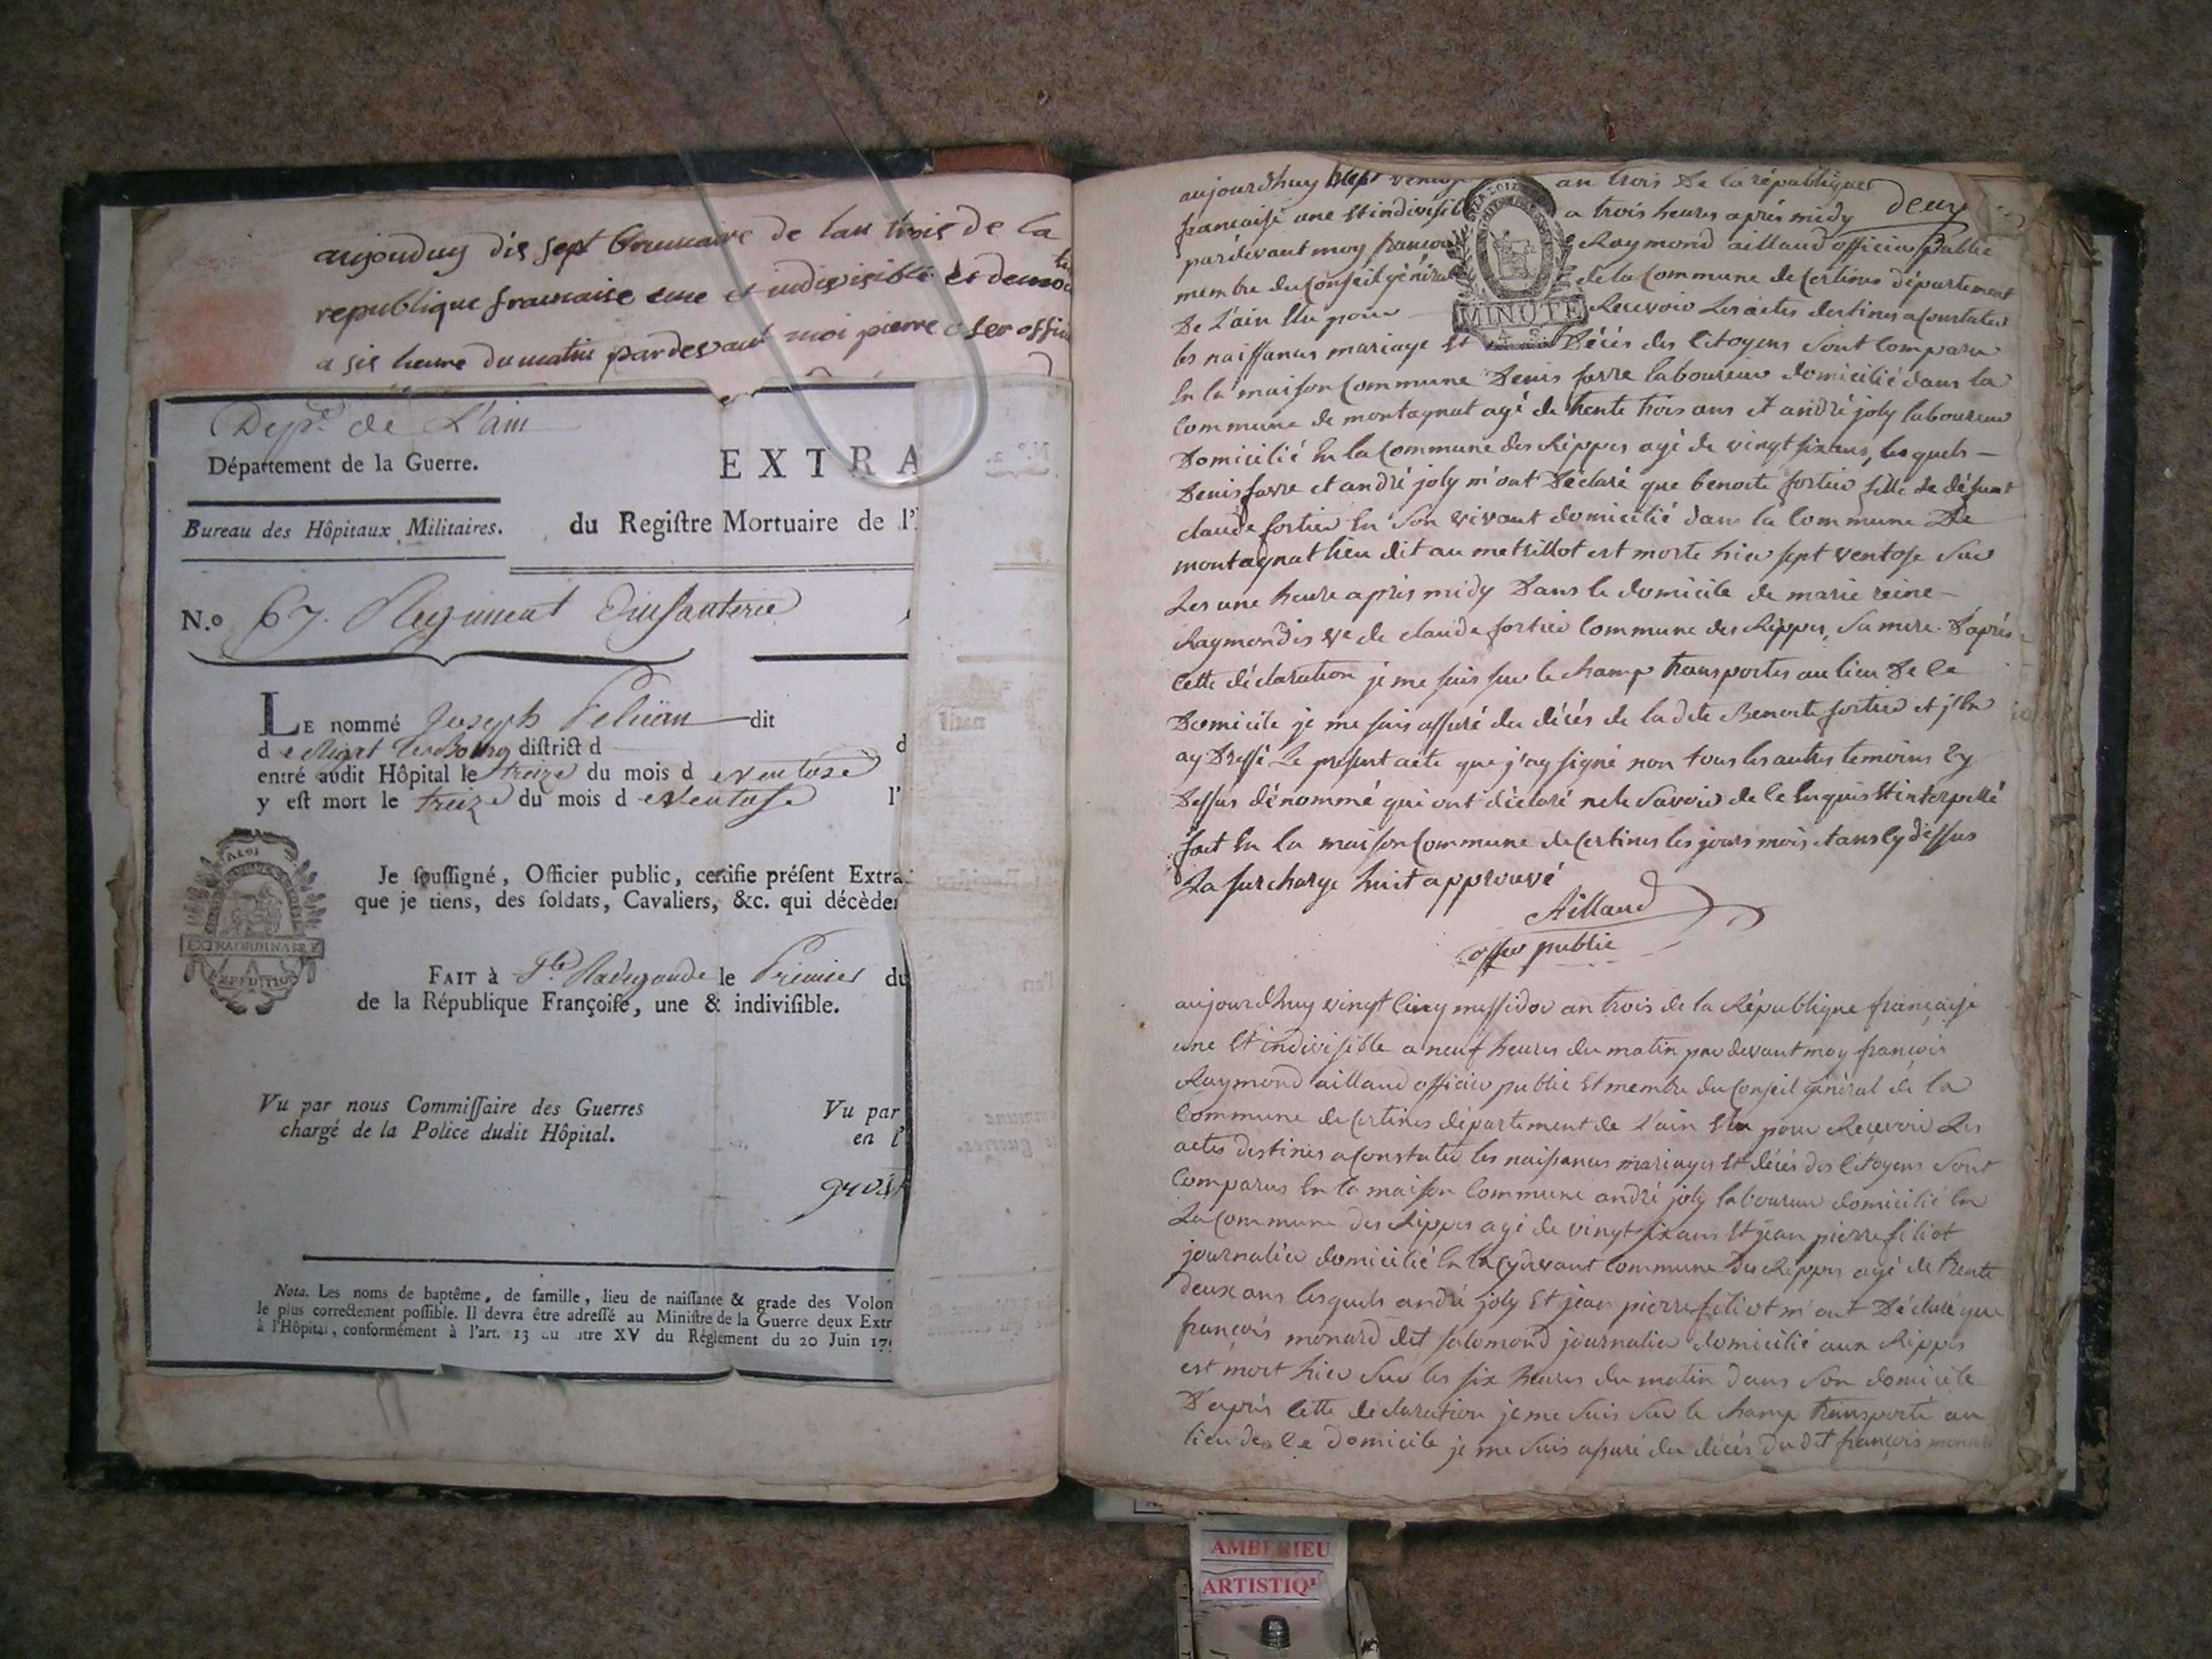 aujouduy dis sept brumaire de lan trois de la
republique francaise eune et indivisible et démo
a sis heure du matin pardevant moi pierre offi
Dept. de L'ain
Département de la Guerre.
EXTRA
Bureau des Hôpitaux Militaires.
du Regiſtre Mortuaire de l'
N.o 67. Regiment Dinfanterie
LE nommé Joseph dit
d diſtrict d d
entré audit Hôpital le treize du mois d e Ventose
y eſt mort le treize du mois d e Ventose l'
LA LOI
EXTRAORDINAIRE
EXPEDITION
Je ſouſſigné, Officier public, certifie préſent Extra
que je tiens, des ſoldats, Cavaliers, &c. qui décèder
FAIT à Ste Radegonde le Premier du
de la République Françoiſe, une & indiviſible.
Vu par nous Commiſſaire des Guerres
chargé de la Police dudit Hôpital.
Vu par
en l'
Nota. Les noms de baptême, de famille, lieu de naiſſance & grade des Volon
le plus correctement poſſible. Il devra être adreſſé au Miniſtre de la Guerre deux Extr
à l'Hôpital, conformément à l'art. 13 du titre XV du Réglement du 20 Juin 179
aujourdhuy huit ventose an trois de la république deux
francaise une et indivisible a trois heures après midy
pardevant moy francois Raymond aillaud officier public
membre du Conseil général de la Commune de Certines département
de L'ain Elu pour Recevoir Les actes destines a Constater
les naissances mariage et Décés des Citoyens sont comparu
En la maison Commune Denis favre laboureur domicilié dans la
Commune de montagnat agé de trente trois ans et andré joly laboureur
Domicilié En la Commune des Rippes agé de vingt six ans, lesquels
Denis favre et andré joly m'ont Déclaré que benoite fortier fille de défunt
claude fortier En Son vivant domicilié dans la Commune De
montagnat lieu dit au metrillot est morte hier sept ventose Sur
Les une heure après midy Dans le domicile de marie reine
Raymondis ve de claude fortier Commune des Rippes, Sa mere. D'après
Cette déclaration je me suis sur le champ transportes au lieu De Ce
Domicile je me suis assuré du décés de la dite Benoite fortier et j'En
ay Dressé Le present acte que j'ay signé non tous les autres temoins Cy
Dessus dénommé qui ont déclaré ne le Savoir de ce Enquis Et interpellé
fait En la maison Commune de Certines les jours mois et ans Cy dessus
La surcharge huit approuvé
Aillaud
offer public
MINUTE
aujourdhuy vingt Cinq messidor an trois de la République française
une Et indivisible a neuf heures du matin par devant moy françois
Raymond aillaud officier public Et membre du Conseil général de la
Commune de Certines département de L'ain Elu pour Recevoir Les
actes destines a Constater les naissances mariages Et décés des Citoyens Sont
Comparus En la maison Commune andré joly laboureur domicilié En
La Commune des Rippes agé de vingt six ans Et jean pierre filiot
journalier domicilié En la Cydevant Commune Des Rippes agé de trente
deux ans lesquels andré joly Et jean pierre filiot m'ont Déclaré que
françois monard dit salomond journalier domicilié aux Rippes
est mort hier Sur les six heures du matin dans Son domicile
D'après Cette déclaration je me Suis Sur le champ transporté au
lieu de Ce Domicile je me Suis assuré du décés Du dit françois monard
AMBERIEU
ARTISTIQ